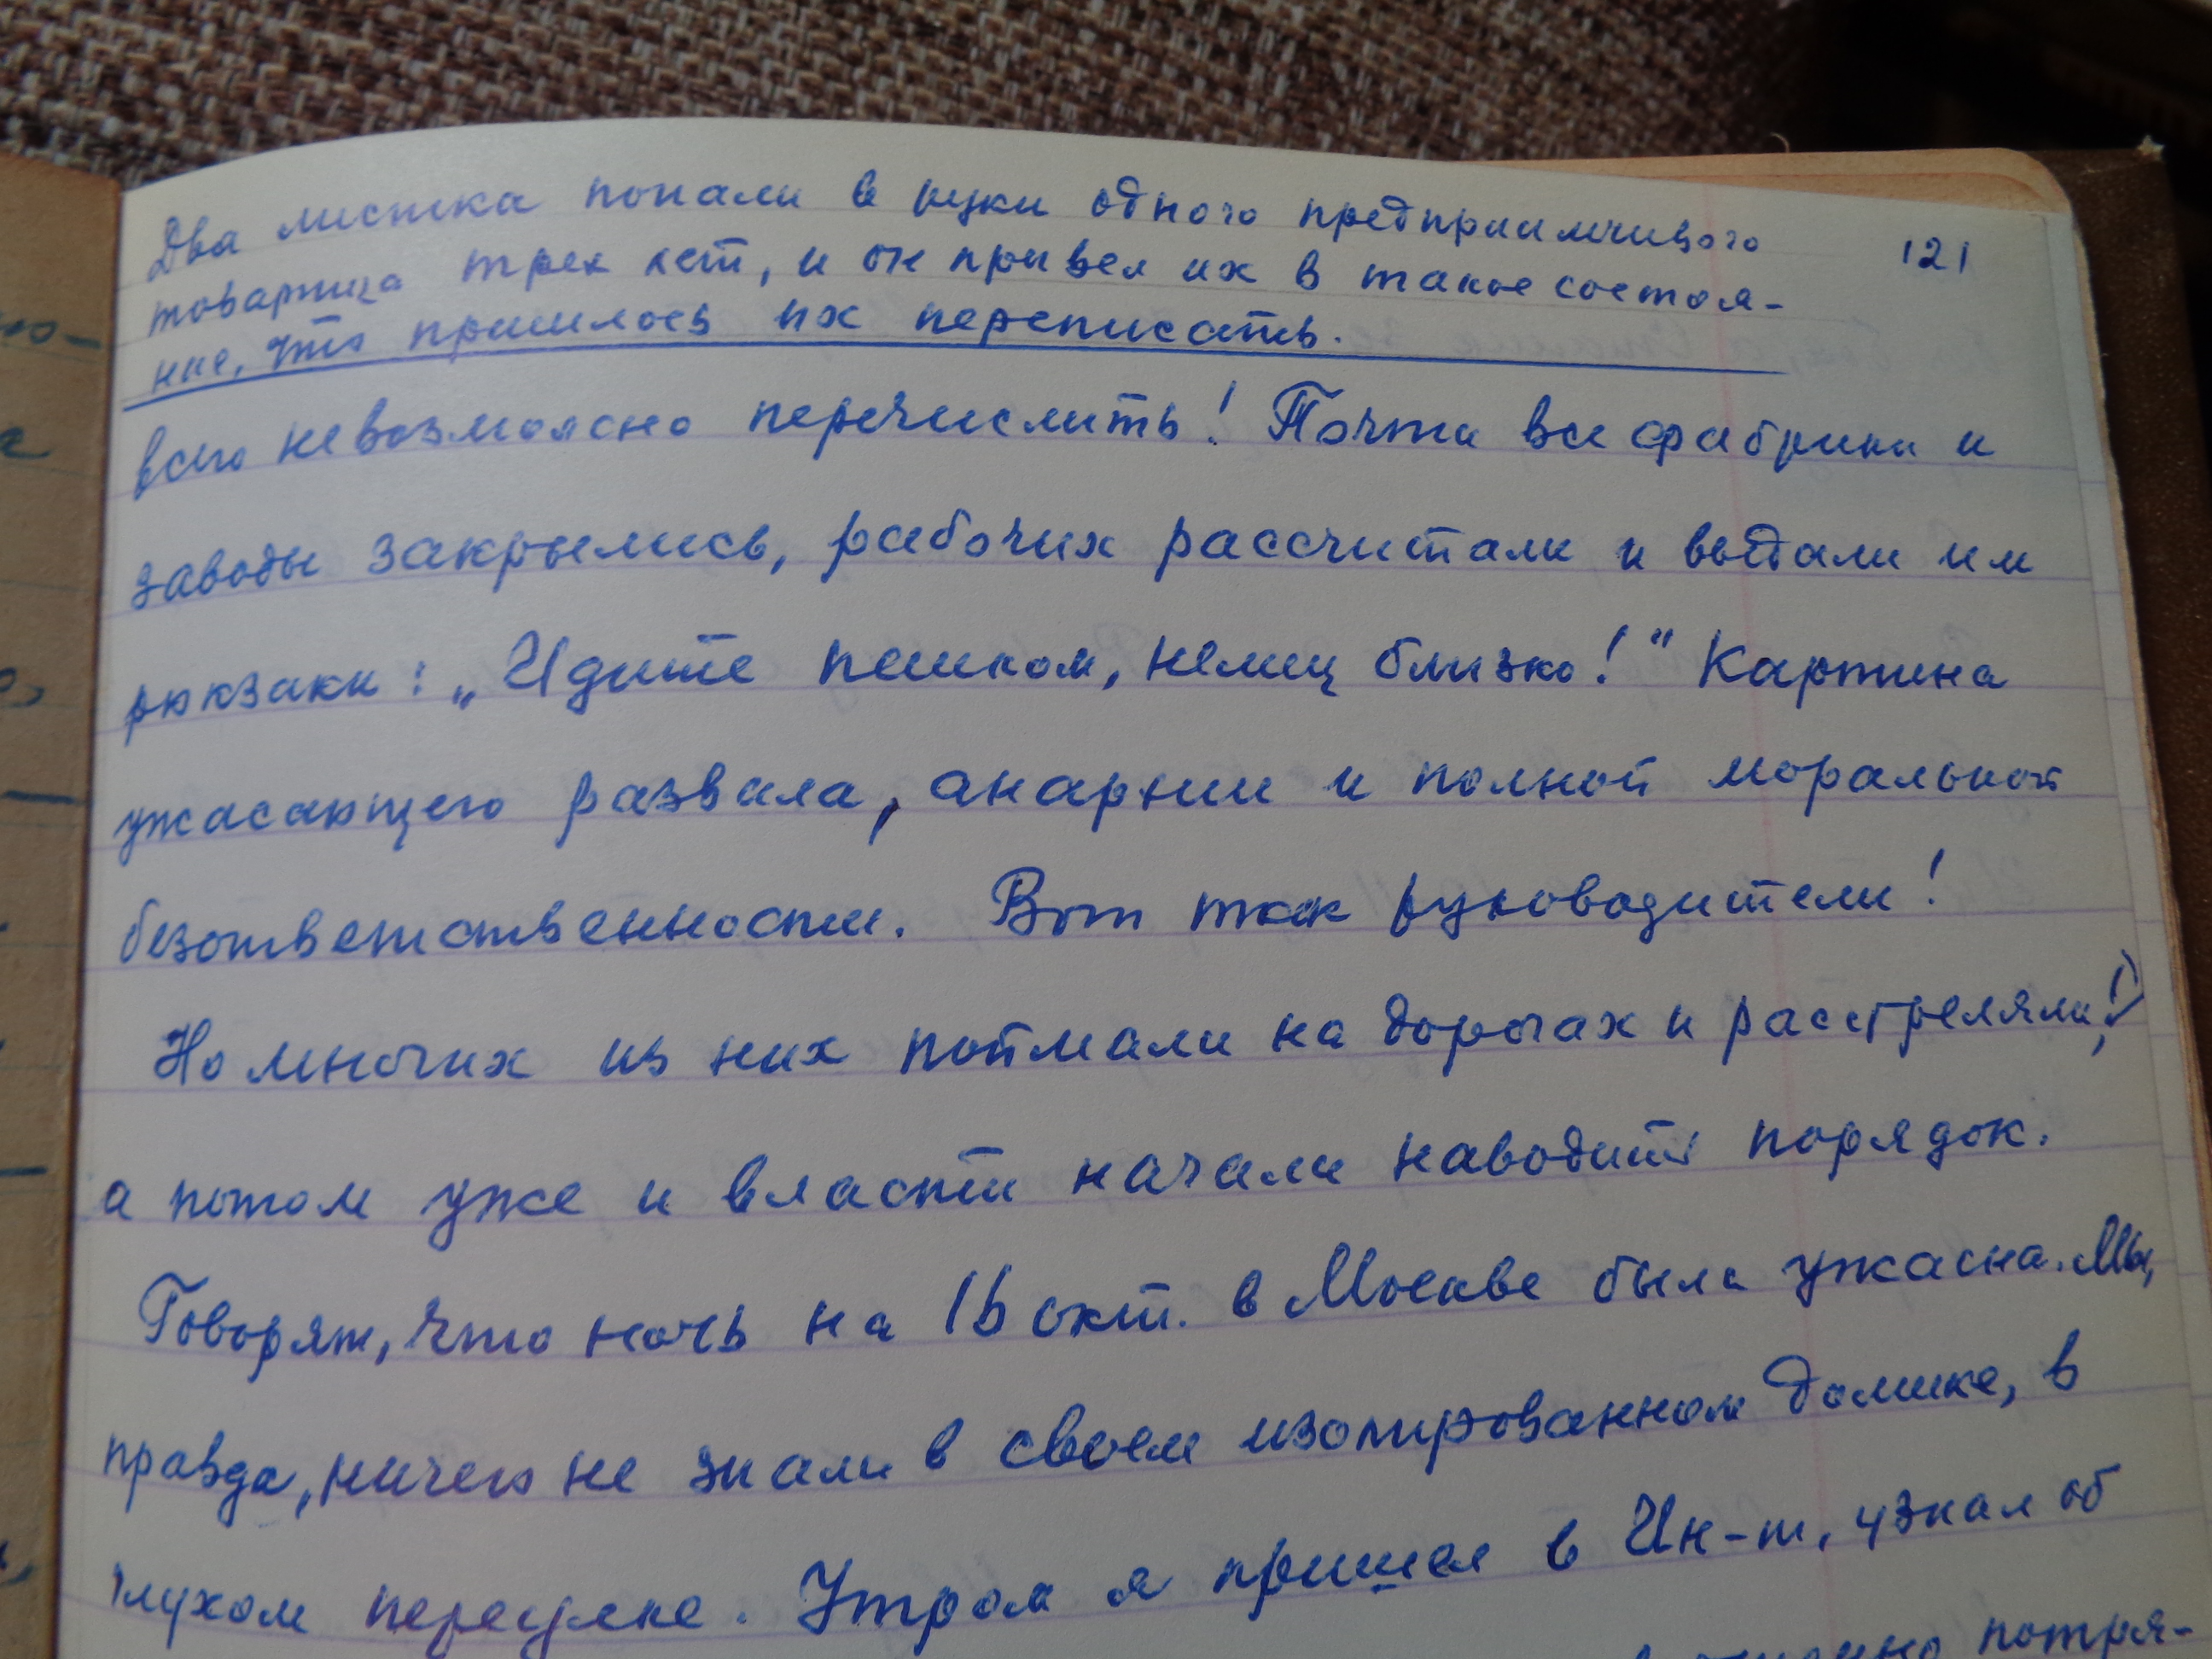 Два листка попали в руки одного предприимчивого
121
товарища трех лет, и он привел их в такое состоя-
ние, что пришлось их переписать.
всего невозможно перечислить! Почти все фабрики и
заводы закрылись, рабочих рассчитали и выдали им
рюкзаки: „Идите пешком, немец близко!" Картина
ужасающего развала, анархии и полной моральной
безответственности. Вот так руководители!
Но многих из них поймали на дорогах и расстреляли, (!)
а потом уже и власти начали наводить порядок.
Говорят, что ночь на 16 окт. в Москве была ужасна. Мы,
правда, ничего не знали в своем изолированном домике, в
глухом переулке. Утром я пришел в Ин-т, узнал об
потря-